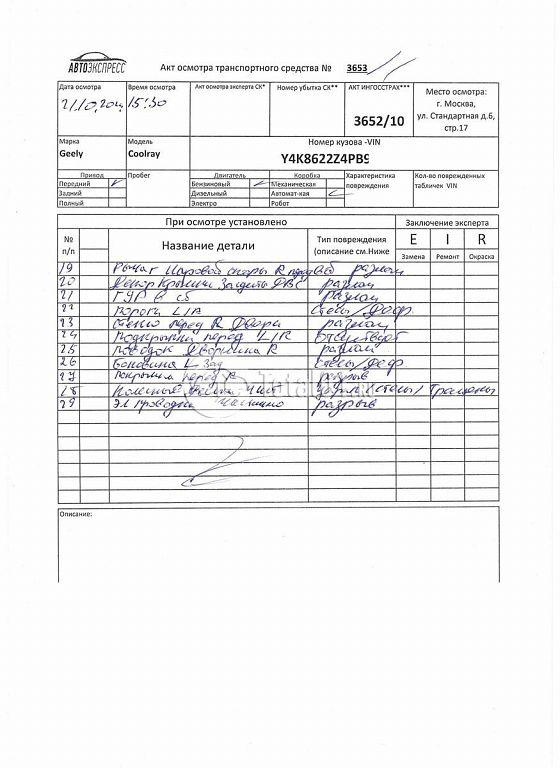 АВТОЭКСПРЕСС
Акт осмотра транспортного средства № 3653
Дата осмотра Время осмотра Акт осмотра эксперта СК* Номер убытка СК** АКТ ИНГОССТРАХ*** Место осмотра:
г. Москва,
ул. Стандартная д.6,
стр.17
15:30 3652/10
Марка Модель Номер кузова -VIN
Geely Coolray Y4K8622Z4PB9
Привод Пробег Двигатель Коробка Характеристика повреждения Кол-во поврежденных табличек VIN
Передний Бензиновый Механическая
Задний Дизельный Автомат-кая
Полный Электро Робот
При осмотре установлено Заключение эксперта
№ п/п Название детали Тип повреждения (описание см.Ниже E I R
Замена Ремонт Окраска
19 Рычаг Шаровой опоры R перед разлом
20 Декор Крышки Защиты ДВС разлом
21 ГУР в сб разлом
22 Пороги L/R Стёсы/Деф
23 Стекло перед R Двери разлом
24 Подкрылки перед L/R Отсутствуют
25 Поводок Дворника R разлом
26 Боковина L Зад Стёсы/Деф
27 Покрышка перед R разрыв
28 Колёсные Диски 4 шт Стёсы/ Трещины
29 Эл проводка разрыв
Описание: